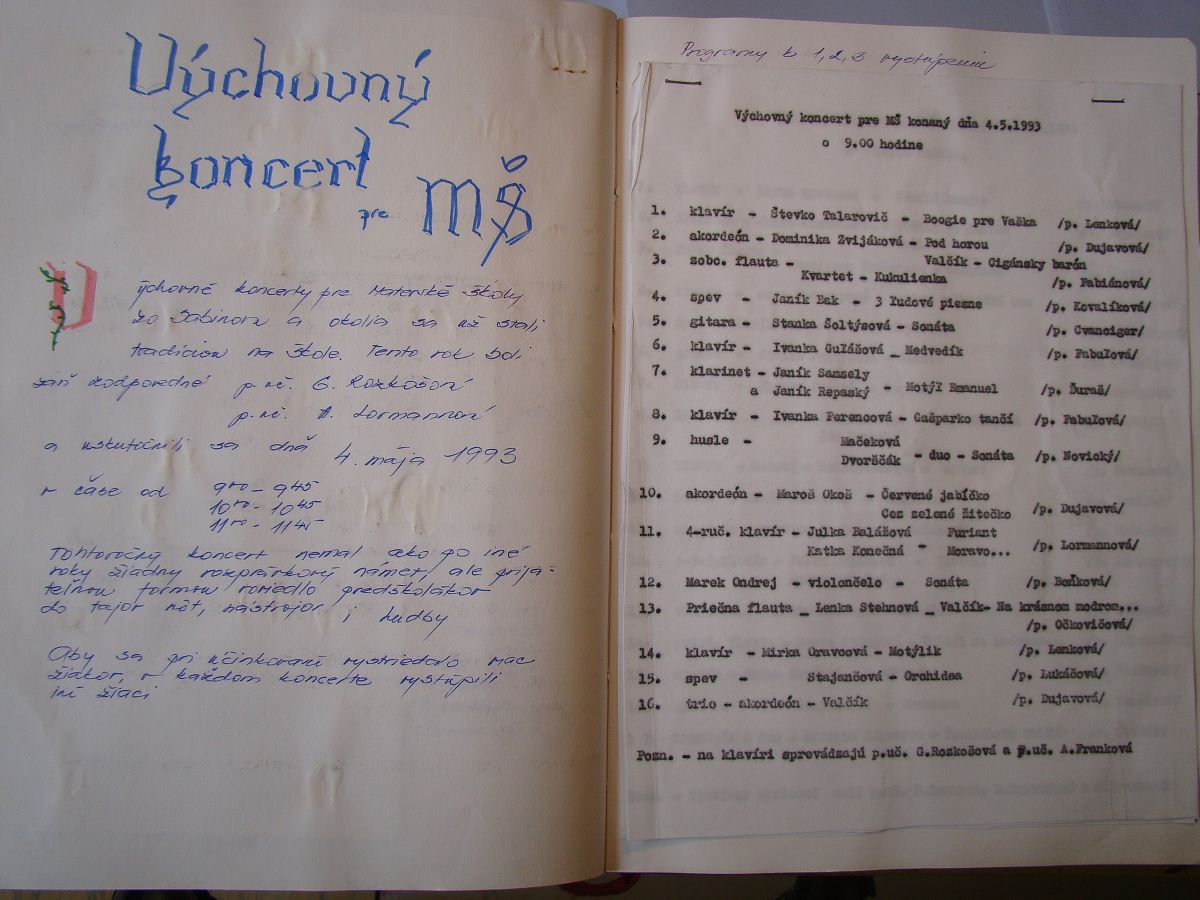 Výchovný
koncert
pre MŠ
Výchovné koncerty pre Materské školy
zo Sabinova a okolia sa už stali
tradíciou na škole. Tento rok boli
zaň zodpovedné p. uč. G. Rozkošová
p. uč. A. Lormannová
a uskutočnili sa dňa 4. mája 1993
v čase od 9⁰⁰ - 9⁴⁵
10⁰⁰ - 10⁴⁵
11⁰⁰ - 11⁴⁵
Tohtoročný koncert nemal ako po iné
roky žiadny rozprávkový námet, ale prija-
teľnou formou voviedlo predškolákov
do tajov nôt, nástrojov i hudby
Aby sa pri účinkovaní vystriedalo viac
žiakov, v každom koncerte vystúpili
iní žiaci
Programy k 1,2,3 vystúpeniu
Výchovný koncert pre MŠ konaný dňa 4.5.1993
o 9.00 hodine
1. klavír - Števko Talarovič - Boogie pre Vaška /p. Lenková/
2. akordeón - Dominika Zvijáková - Pod horou /p. Dujavová/
3. zobc. flauta - Valčík - Cigánsky barón
Kvartet - Kukulienka /p. Fabiánová/
4. spev - Janík Bak - 3 ľudové piesne /p. Kovalíková/
5. gitara - Stanka Šoltýsová - Sonáta /p. Cvanciger/
6. klavír - Ivanka Guľášová - Medvedík /p. Fabuľová/
7. klarinet - Janík Samsely
a Janík Repaský - Motýľ Emanuel /p. Ďuraš/
8. klavír - Ivanka Ferencová - Gašparko tančí /p. Fabuľová/
9. husle - Mačeková
Dvorščák - duo - Sonáta /p. Novický/
10. akordeón - Maroš Okoš - Červené jabíčko
Cez zelené žitečko /p. Dujavová/
11. 4-ruč. klavír - Julka Balážová Furiant
Katka Konečná - Moravo... /p. Lormannová/
12. Marek Ondrej - violončelo - Sonáta /p. Boňková/
13. Priečna flauta _ Lenka Stehnová _ Valčík- Na krásnom modrom...
/p. Očkovičová/
14. klavír - Mirka Oravcová - Motýlik /p. Lenková/
15. spev - Stajančová - Orchidea /p. Lukáčová/
16. trio - akordeón - Valčík /p. Dujavová/
Pozn. - na klavíri sprevádzajú p.uč. G.Rozkošová a p.uč. A.Franková